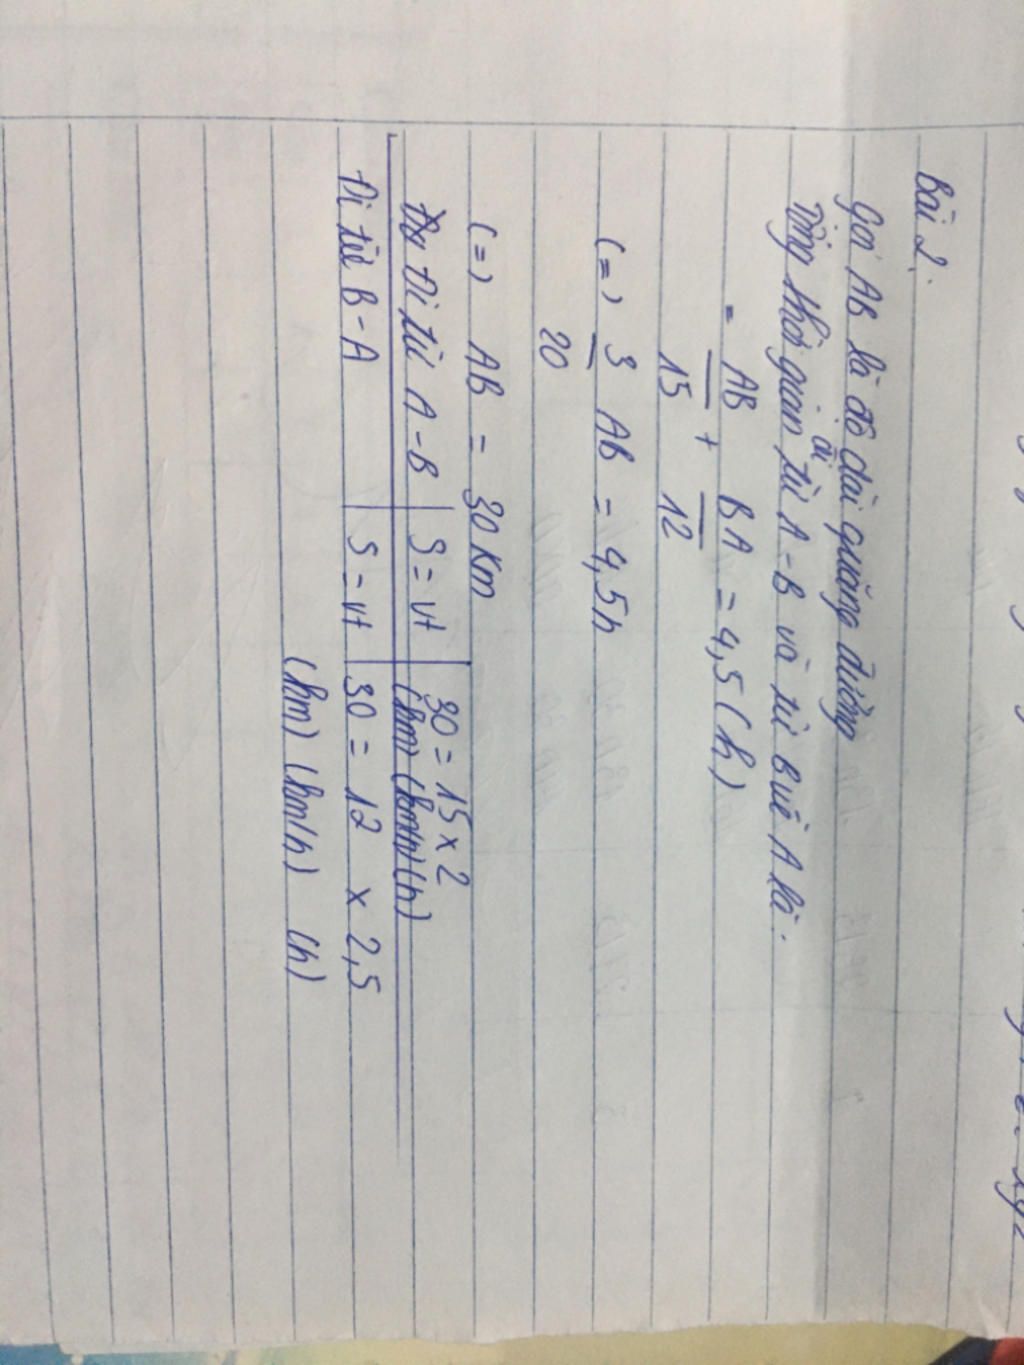 Bài 2:
Gọi AB là độ dài quãng đường
Tổng thời gian đi từ A-B và từ B về A là:
= AB/15 + BA/12 = 4,5 (h)
(=) 3/20 AB = 4,5h
(=) AB = 30 Km
Đi từ A-B | S = vt | 30 = 15 x 2
(km) (km/h) (h)
Đi từ B-A | S = vt | 30 = 12 x 2,5
(km) (km/h) (h)